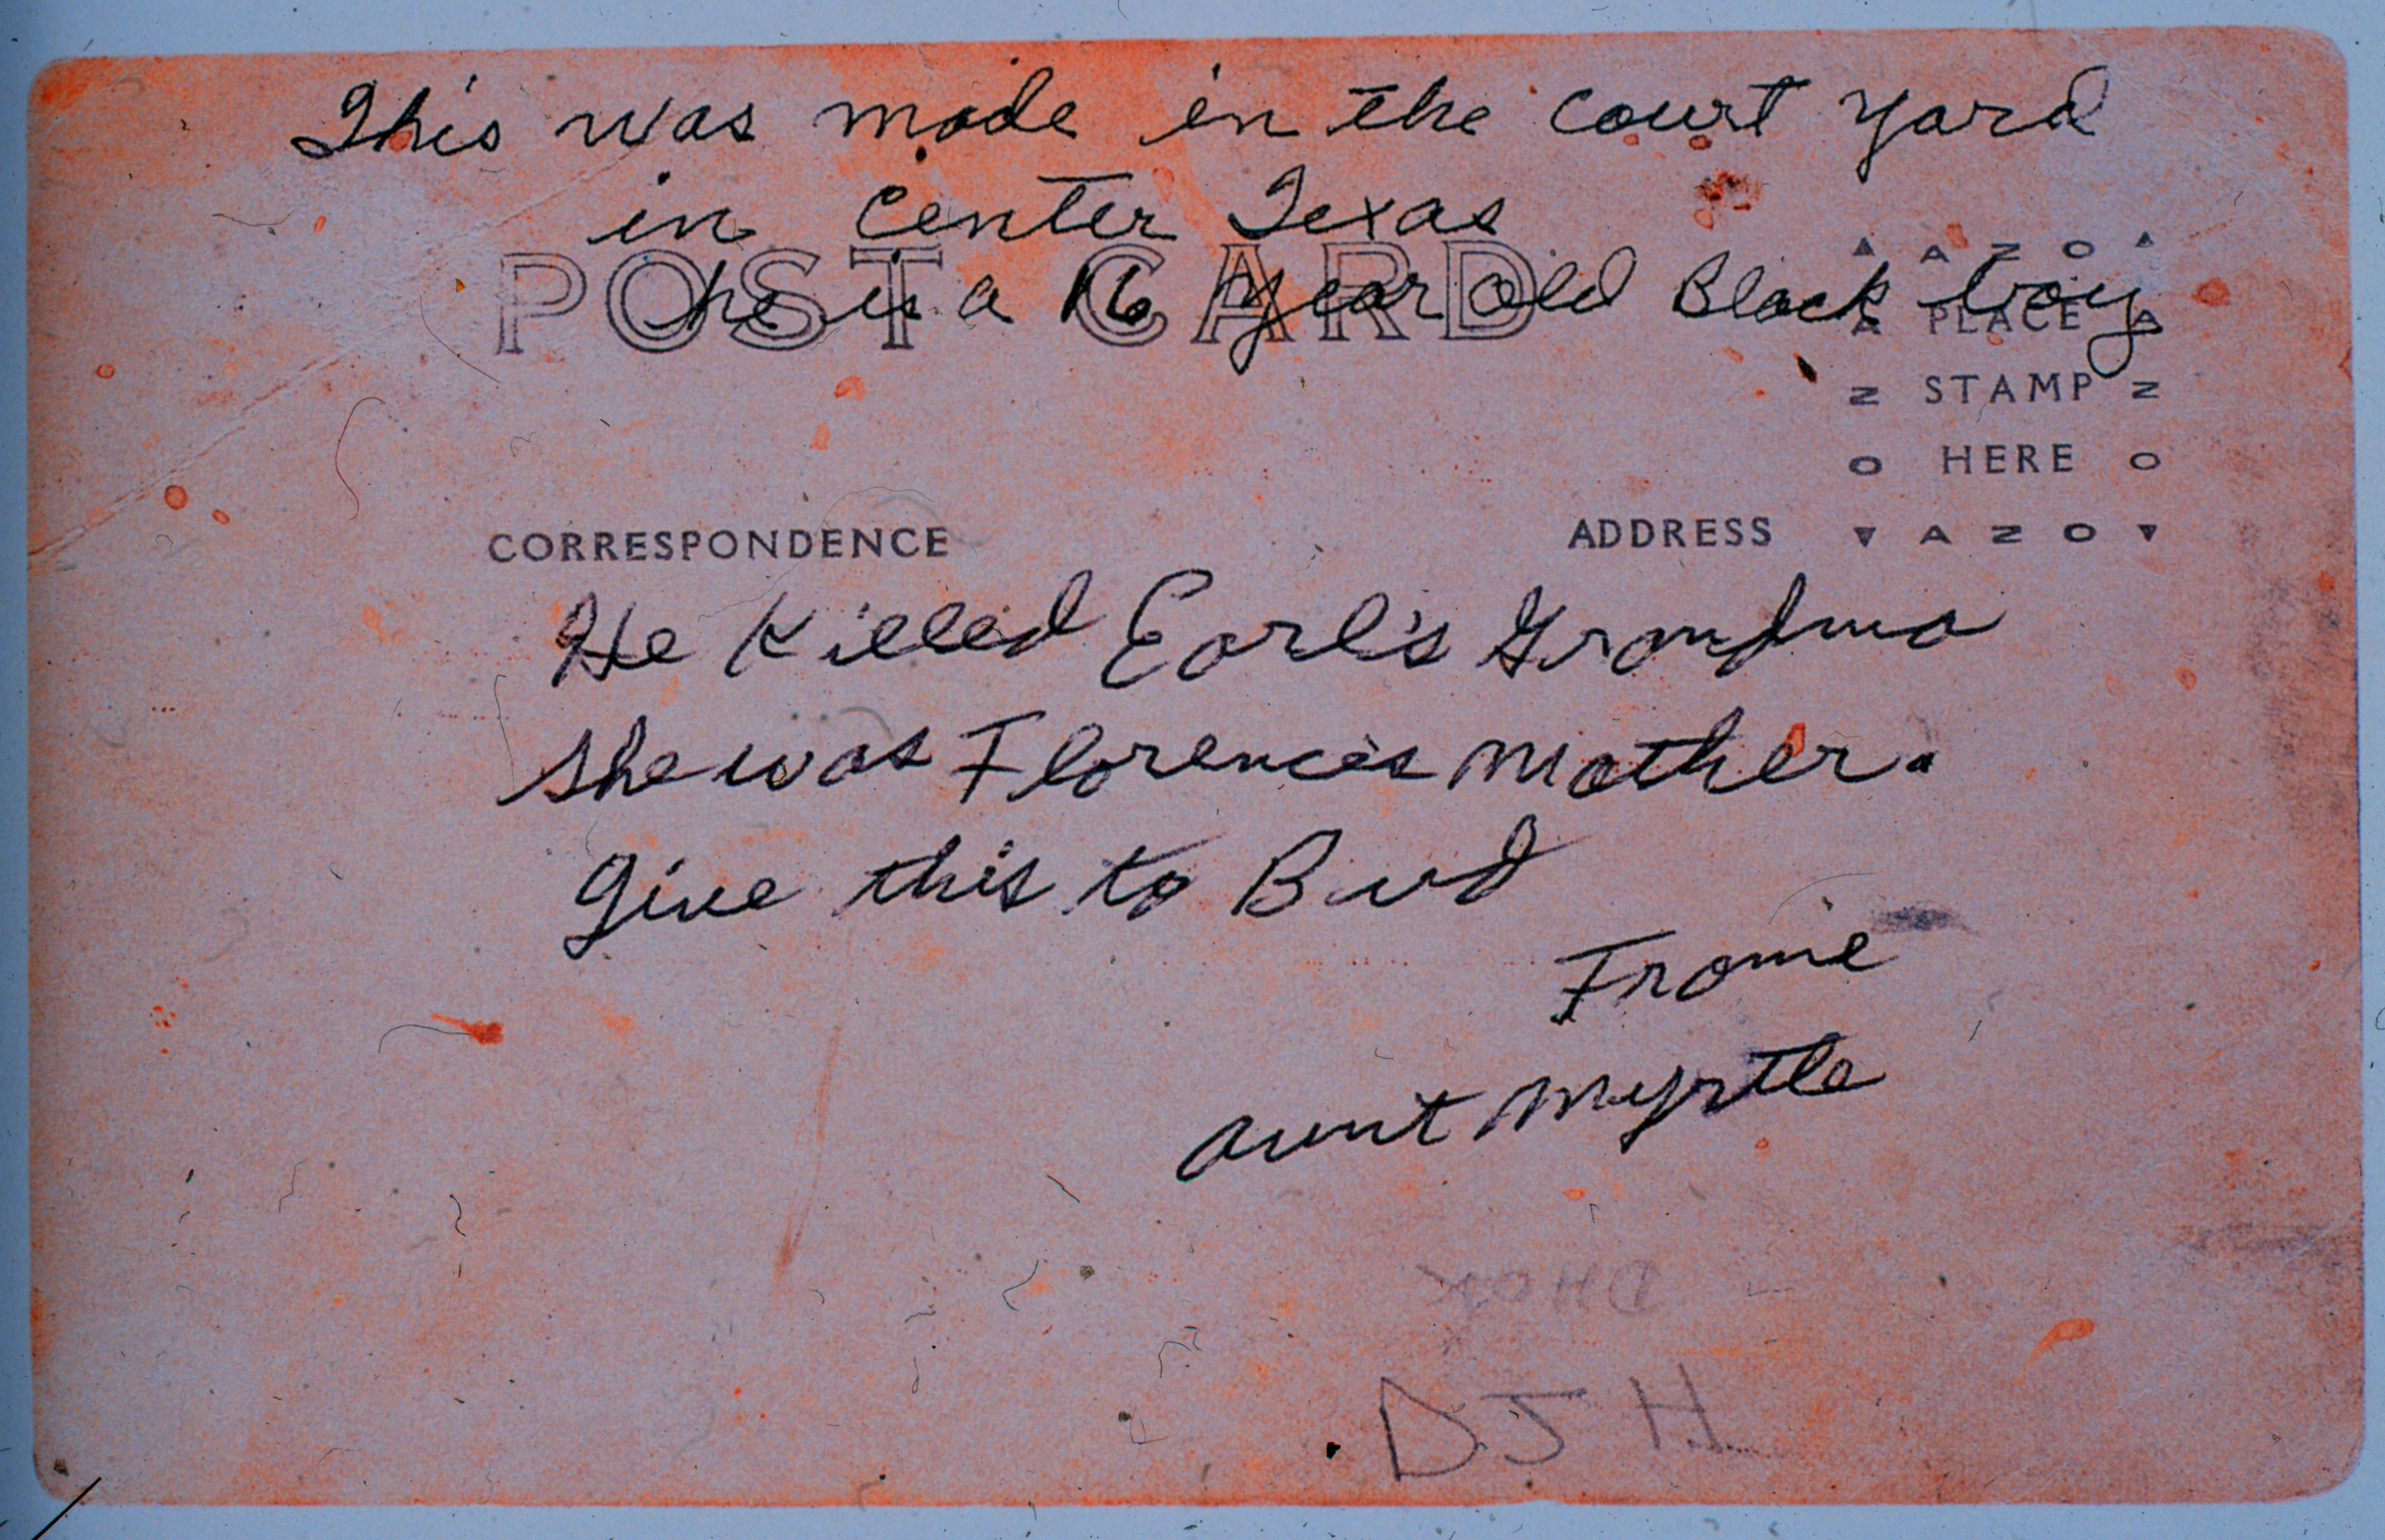 This was made in the court yard
in Center Texas
he is a 16 year old Black boy
POST CARD
AZO
PLACE
STAMP
HERE
AZO
CORRESPONDENCE
ADDRESS
He Killed Earl's Grandma
She was Florence's mother.
Give this to Bud
From
aunt Myrtle
DJH